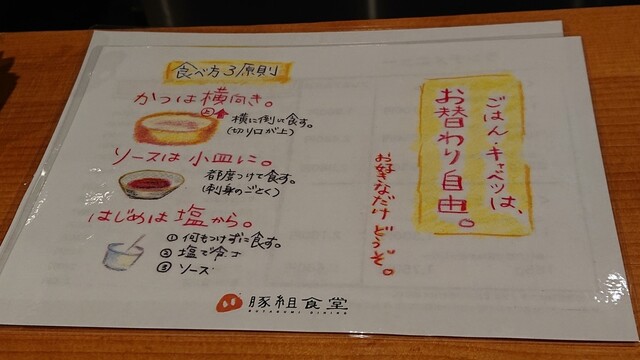 ごはん・キャベツは、
お替わり自由。
お好きなだけどうぞ。
食べ方3原則
かつは横向き。
上
横に倒して食す。
(切り口が上)
ソースは小皿に。
都度つけて食す。
(刺身のごとく)
はじめは塩から。
① 何もつけずに食す。
② 塩で食す
③ ソース
豚組食堂
BUTAGUMI DINING